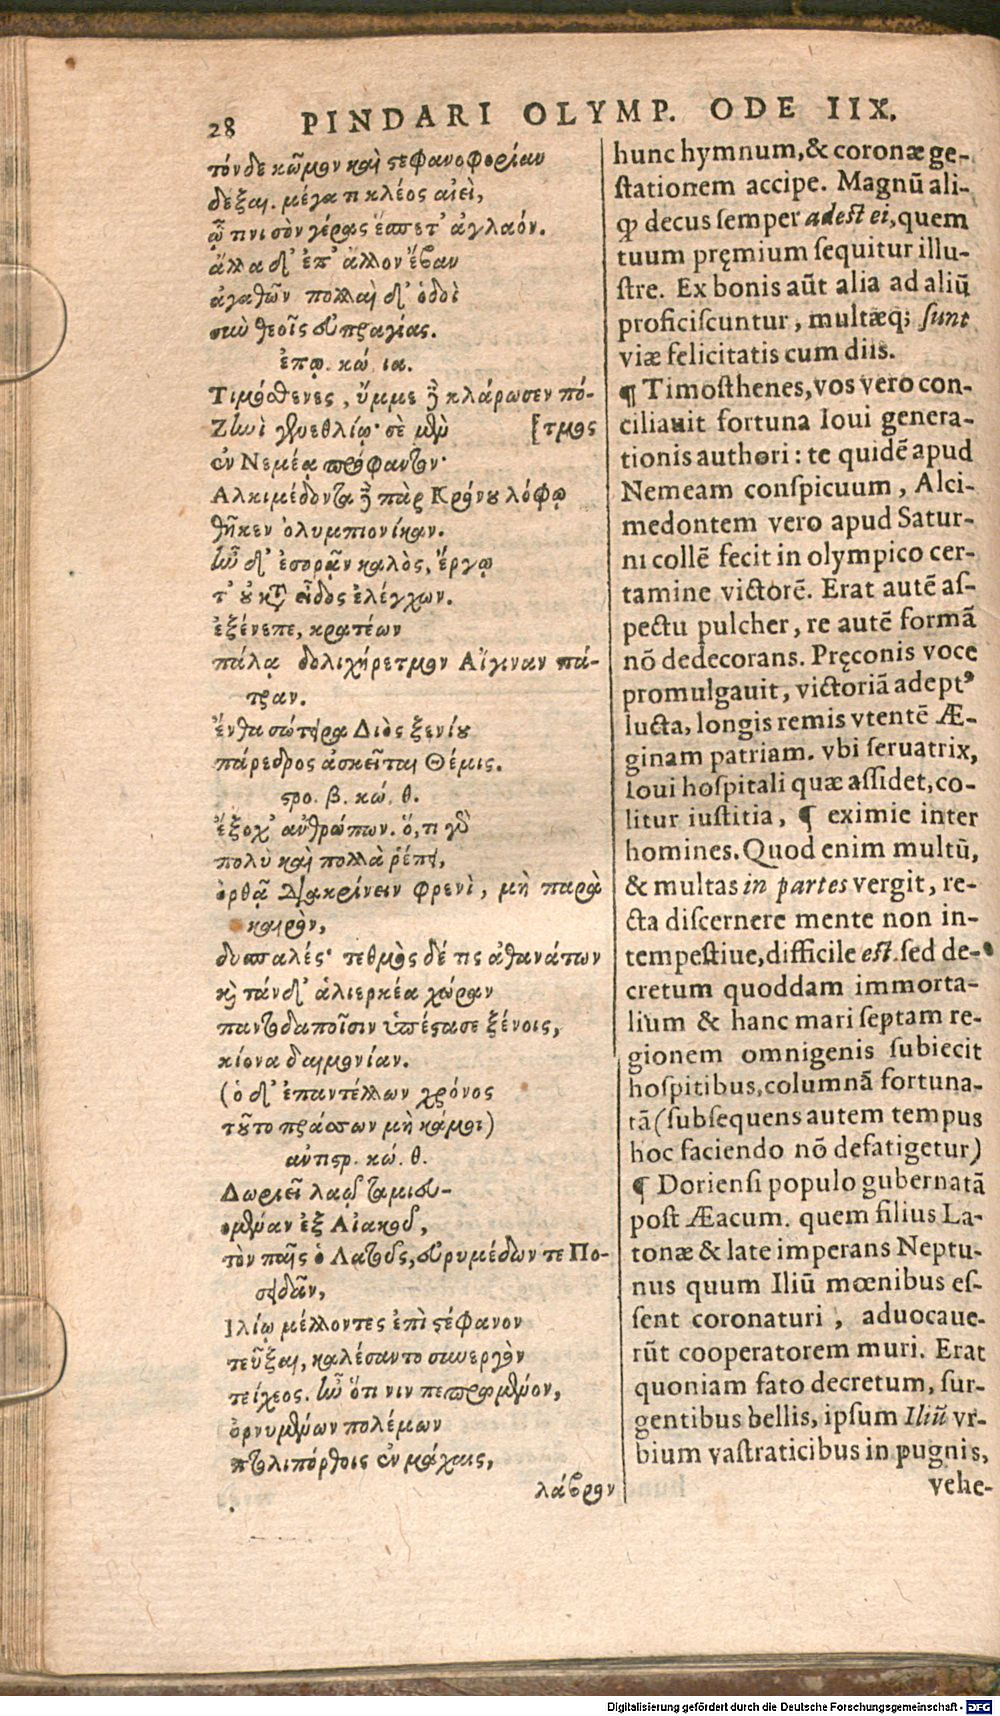 28 PINDARI OLYMP. ODE IIX.
τόνδε κῶμον καὶ στεφανοφορίαν
δέξαι. μέγα τι κλέος αἰεὶ,
ᾧ τινι σὸν γέρας ἕσπετ' ἀγλαόν.
ἄλλα δ' ἐπ' ἄλλον ἔβαν
ἀγαθῶν πολλαὶ δ' ὁδοὶ
σὺν θεοῖς εὐπραγίας.
ἐπῳ. κώ. ια.
Τιμόσθενες, ὔμμε δὲ κλάρωσεν πό-
Ζηνὶ γενεθλίῳ· σὲ μὲν [τμος
ἐν Νεμέᾳ πρόφαντον·
Αλκιμέδοντα δὲ πὰρ Κρόνου λόφῳ
θῆκεν ὀλυμπιονίκαν.
ἦν δ' ἐσορᾷν καλὸς, ἔργῳ
τ' οὐ κατὰ εἶδος ἐλέγχων.
ἐξένεπε, κρατέων
πάλᾳ δολιχήρετμον Αἴγιναν πά-
τραν.
ἔνθα σώτειρα Διὸς ξενίου
πάρεδρος ἀσκεῖται Θέμις.
στρο. β. κώ. θ.
ἔξοχ' ἀνθρώπων. ὅ,τι γὰρ
πολὺ καὶ πολλὰ ῥέπει,
ὀρθᾷ διακρίνειν φρενὶ, μὴ παρὰ
καιρὸν,
δυσπαλές· τεθμὸς δέ τις ἀθανάτων
καὶ τάνδ' ἁλιερκέα χώραν
παντοδαποῖσιν ὑπέστασε ξένοις,
κίονα δαιμονίαν.
(ὁ δ' ἐπαντέλλων χρόνος
τοῦτο πράσσων μὴ κάμοι)
ἀντιστρ. κώ. θ.
Δωριεῖ λαῷ ταμιευ-
ομέναν ἐξ Αἰακοῦ,
τὸν παῖς ὁ Λατοῦς, εὐρυμέδων τε Πο-
σειδᾶν,
Ιλίῳ μέλλοντες ἐπὶ στέφανον
τεῦξαι, καλέσαντο συνεργὸν
τείχεος. ἦν ὅτι νιν πεπρωμένον,
ὀρνυμένων πολέμων
πτολιπόρθοις ἐν μάχαις,
λάβρον
hunc hymnum, & coronæ ge-
stationem accipe. Magnū ali-
qꝫ decus semper adest ei, quem
tuum pręmium sequitur illu-
stre. Ex bonis aūt alia ad aliū
proficiscuntur, multæq; sunt
viæ felicitatis cum diis.
¶ Timosthenes, vos vero con-
ciliauit fortuna Ioui genera-
tionis authori: te quidē apud
Nemeam conspicuum, Alci-
medontem vero apud Satur-
ni collē fecit in olympico cer-
tamine victorē. Erat autē as-
pectu pulcher, re autē formā
nō dedecorans. Pręconis voce
promulgauit, victoriā adeptꝰ
lucta, longis remis vtentē Æ-
ginam patriam. vbi seruatrix,
Ioui hospitali quæ assidet, co-
litur iustitia, ¶ eximie inter
homines. Quod enim multū,
& multas in partes vergit, re-
cta discernere mente non in-
tempestiue, difficile est. sed de-
cretum quoddam immorta-
lium & hanc mari septam re-
gionem omnigenis subiecit
hospitibus, columnā fortuna-
tā (subsequens autem tempus
hoc faciendo nō defatigetur)
¶ Doriensi populo gubernatā
post Æacum. quem filius La-
tonæ & late imperans Neptu-
nus quum Iliū mœnibus es-
sent coronaturi, aduocaue-
rūt cooperatorem muri. Erat
quoniam fato decretum, sur-
gentibus bellis, ipsum Iliū vr-
bium vastraticibus in pugnis,
vehe-
Digitalisierung gefördert durch die Deutsche Forschungsgemeinschaft - DFG